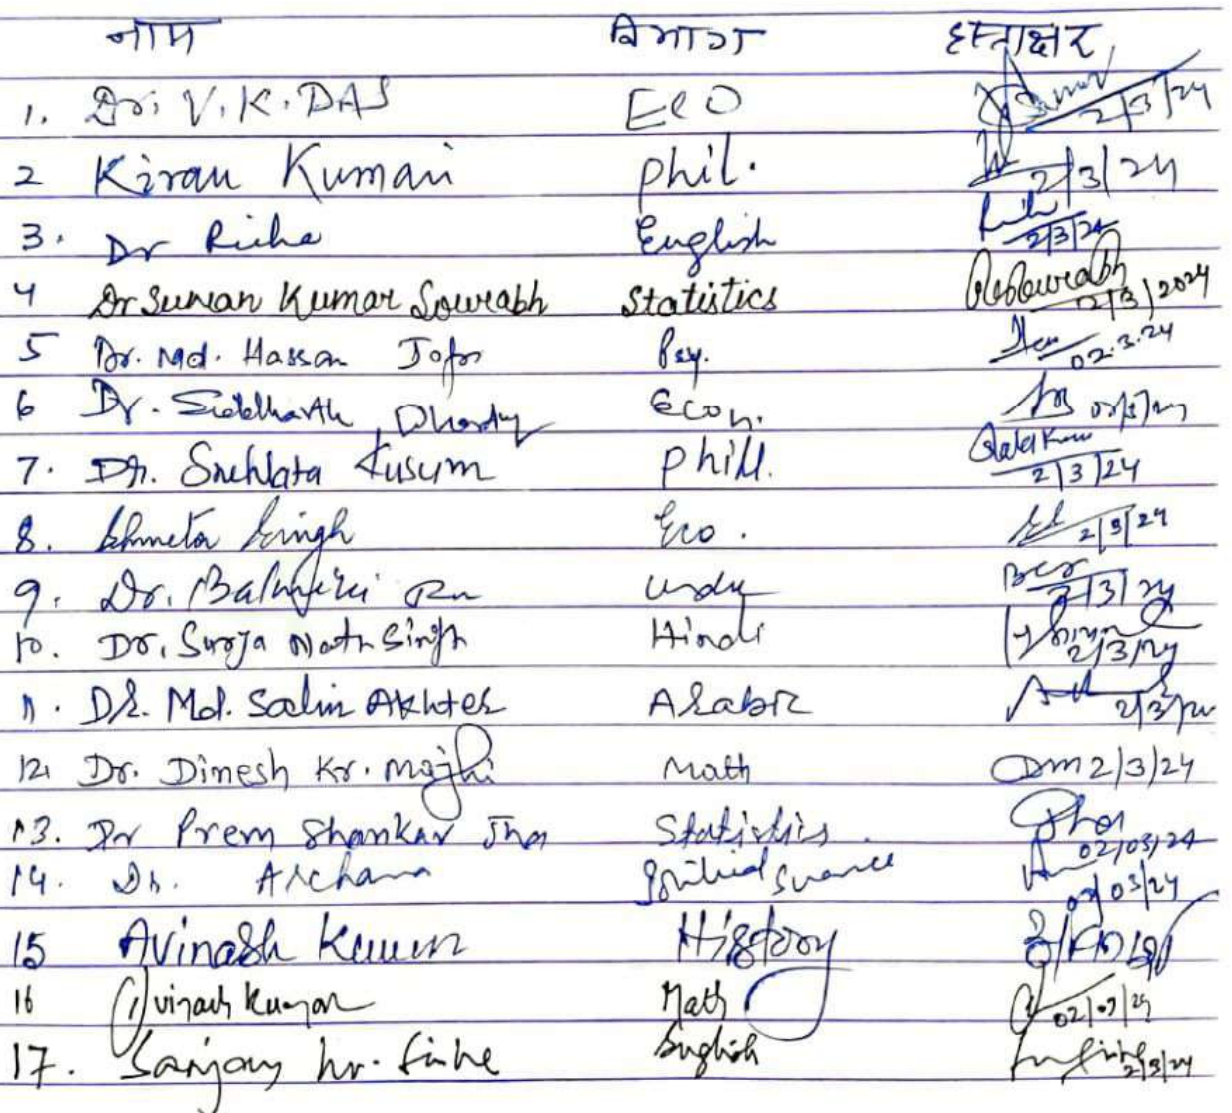 नाम विभाग हस्ताक्षर
1. Dr. V.K. DAS ECO 2/3/24
2 Kiran Kumari Phil. 2/3/24
3. Dr Richa English 2/3/24
4 Dr Suman Kumar Sourabh Statistics 2/3/2024
5 Dr. Md. Hassan Psy. 02.3.24
6 Dr. Siddharth Econ.
7. Dr. Snehlata Kusum Phill. 2/3/24
8. Shweta Singh Eco. 2/3/24
9. Dr. Balmiki Urdu 2/3/24
10. Dr. Surja Nath Singh Hindi 2/3/24
11. DR. Md. Salim Akhter Arabic 2/3/24
12. Dr. Dinesh Kr. Majhi Math Dm 2/3/24
13. Dr Prem Shankar Jha Statistics 02/03/24
14. Dr. Archana Political Science 02/03/24
15 Avinash Kumar History
16 Avinash Kumar Math 02/03/24
17. Sanjay kr. Sinha English 2/3/24